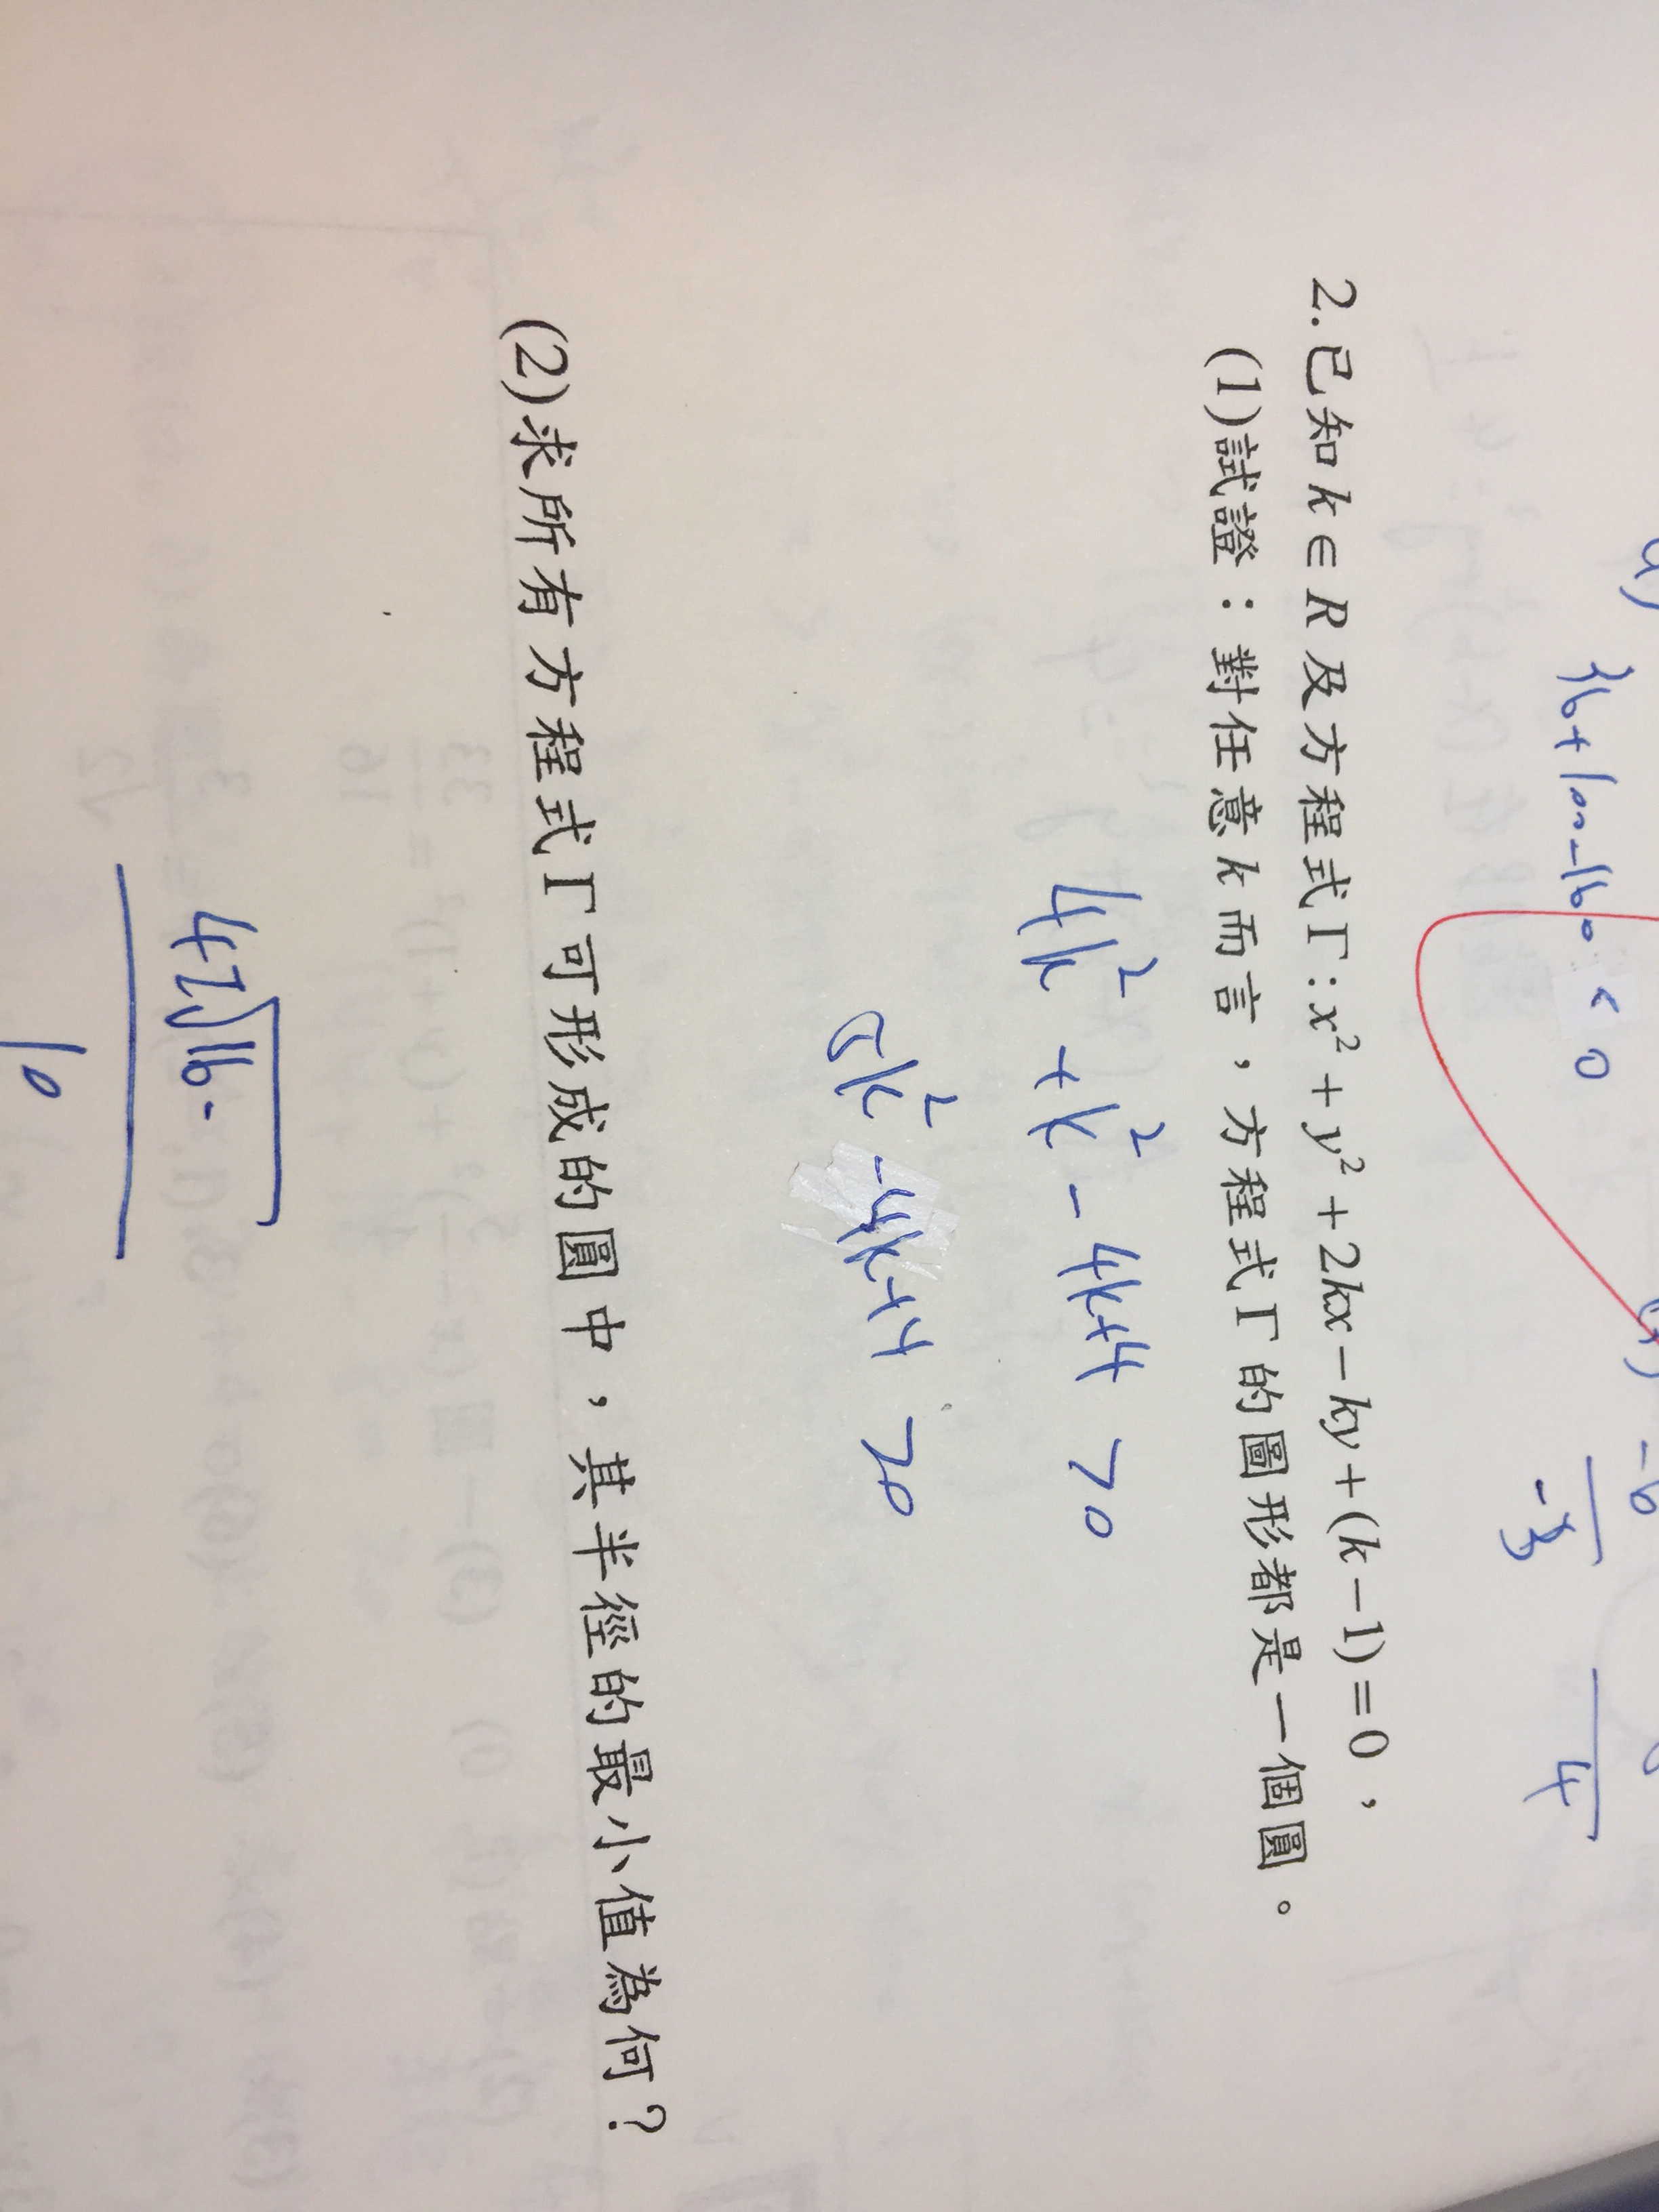 36+100-160<0
-6
4
2.已知k∈R及方程式Γ:x²+y²+2kx-ky+(k-1)=0，
(1)試證：對任意k而言，方程式Γ的圖形都是一個圓。
4k²+k²-4k+4>0
5k²-4k+4>0
(2)求所有方程式Γ可形成的圓中，其半徑的最小值為何？
10